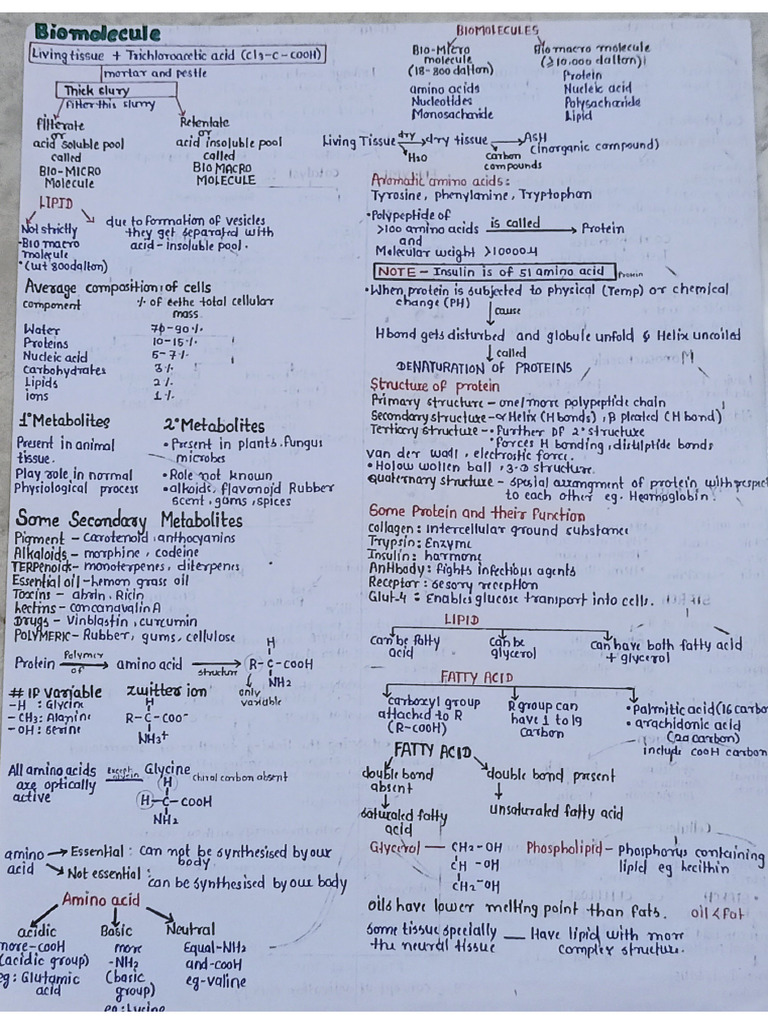 Biomolecule
Living tissue + Trichloroacetic acid (Cl3-C-COOH)
mortar and pestle
Thick slury
Filter this slurry
filterate
or
acid soluble pool
called
BIO-MICRO
Molecule
Retentate
or
acid insoluble pool
called
BIO MACRO
MOLECULE
LIPID
Not strictly
Bio macro
molecule
(wt 800dalton)
due to formation of vesicles
they get separated with
acid-insoluble pool.
Average composition of cells
component
% of the total cellular
mass
Water 70-90%
Proteins 10-15%
Nucleic acid 5-7%
Carbohydrates 3%
Lipids 2%
ions 1%
1° Metabolites
Present in animal
tissue.
Play role in normal
Physiological process
2° Metabolites
• Present in plants. Fungus
microbes
• Role not known
• alkoids, flavonoid Rubber
scent, gams, spices
Some Secondary Metabolites
Pigment - Carotenoid, anthocyanins
Alkaloids - morphine, codeine
TERPENOIDS - monoterpenes, diterpenes
Essential oil - hemon grass oil
Toxins - abrin, Ricin
Lectins - concanavalin A
Drugs - Vinblastin, curcumin
POLYMERIC - Rubber, gums, cellulose
Protein Polymer of amino acid structure R-C-COOH
H
NH2
only
variable
# IP variable
-H : Glycine
-CH3: Alanine
-OH: Serine
zwitter ion
H
R-C-COO-
NH3+
All amino acids
are optically
active
except
glycin
Glycine
chiral carbon absent
H
H-C-COOH
NH2
amino
acid
Essential: can not be synthesised by our
body
Not essential: can be synthesised by our body
Amino acid
acidic
more-COOH
(acidic group)
eg: Glutamic
acid
Basic
more
-NH2
(basic
group)
eg: Lycine
Neutral
Equal-NH2
and-COOH
eg-valine
BIOMOLECULES
BIO-MICRO
molecule
(18-800 dalton)
amino acids
Nucleotides
Monosacharide
Bio macro molecule
(≥10,000 dalton)
Protein
Nucleic acid
Polysacharide
Lipid
Living Tissue dry dry tissue ASH
H2O
Carbon
compounds
(Inorganic compound)
Aromatic amino acids:
Tyrosine, phenylanine, Tryptophan
• Polypeptide of
>100 amino acids is called Protein
and
Molecular weight >10000u
NOTE - Insulin is of 51 amino acid Protein
• When protein is subjected to physical (Temp) or chemical
change (PH)
cause
H bond gets disturbed and globule unfold & Helix uncoiled
called
DENATURATION OF PROTEINS
Structure of protein
Primary structure - one/more polypeptide chain
Secondary structure - α Helix (H bonds), β pleated (H bond)
Tertiary structure - • Further of 2° structure
• forces H bonding, disulptide bonds
van der wall, electrostic force.
• Holow wollen ball, 3-D structure.
Quaternary structure - spesial arrangment of protein with respect
to each other eg. Heamoglobin.
Some Protein and their Function
Collagen: Intercellular ground substance
Trypsin: Enzyme
Insulin: harmone
Antibody: fights infectious agents
Receptor: sesory reception
Glut-4: Enables glucose transport into cells.
LIPID
can be fatty
acid
can be
glycerol
can have both fatty acid
+ glycerol
FATTY ACID
carboxyl group
attached to R
(R-COOH)
R group can
have 1 to 19
Carbon
• Palmitic acid (16 carbon
• arachidonic acid
(20 carbon)
include COOH carbon
FATTY ACID
double bond
absent
saturated fatty
acid
double bond present
unsaturated fatty acid
Glycerol — CH2-OH
CH-OH
CH2-OH
Phospholipid - Phosphorus containing
lipid eg lecithin
oils have lower melting point than fats. oil < fat
Some tissue specially
the neural tissue — Have lipid with more
complex structure.